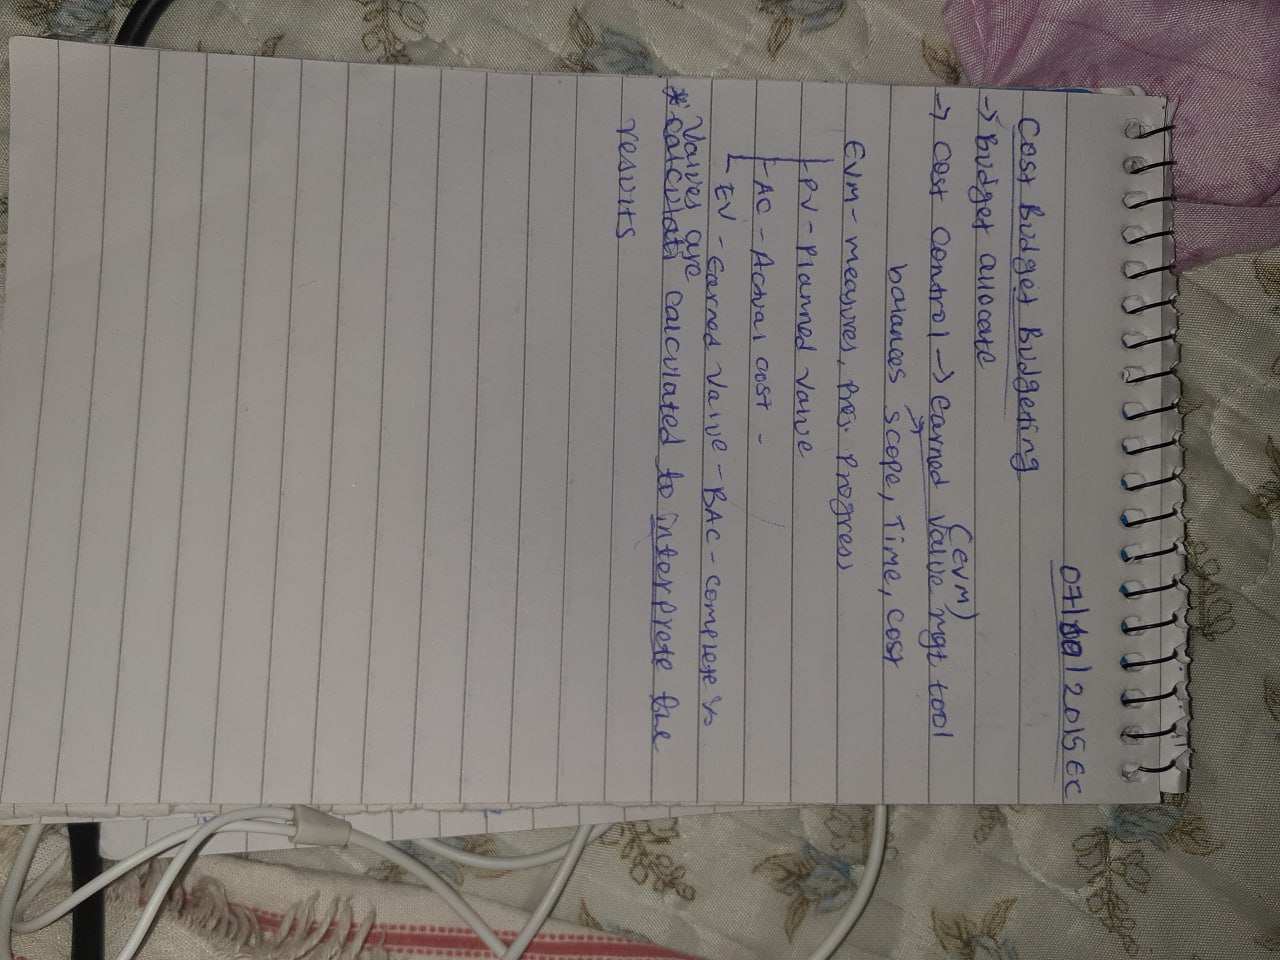 07/10/2015 EC
Cost Budget Budgeting
→ Budget allocate
(EVM)
→ cost control → earned value mgt tool
balances scope, Time, cost
EVM - measures, Progress
PV - Planned Value
AC - Actual cost -
EV - earned value - BAC - complete %
Values are
* calculated to interprete the
results